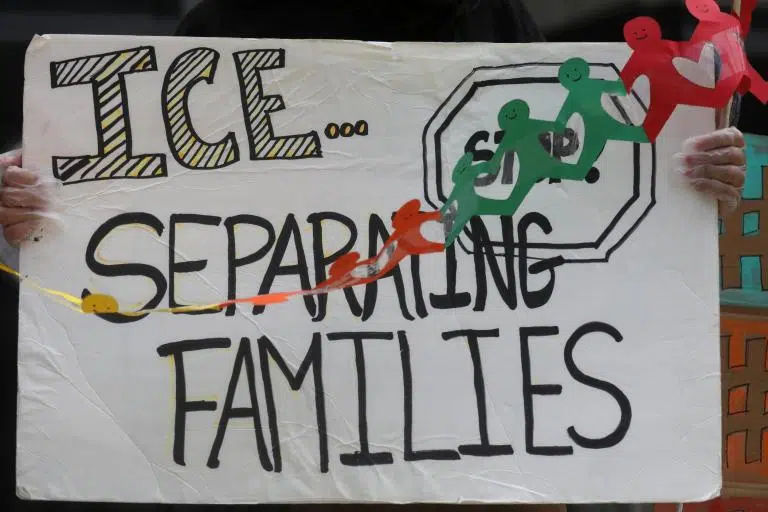 ICE...
STOP.
SEPARATING
FAMILIES